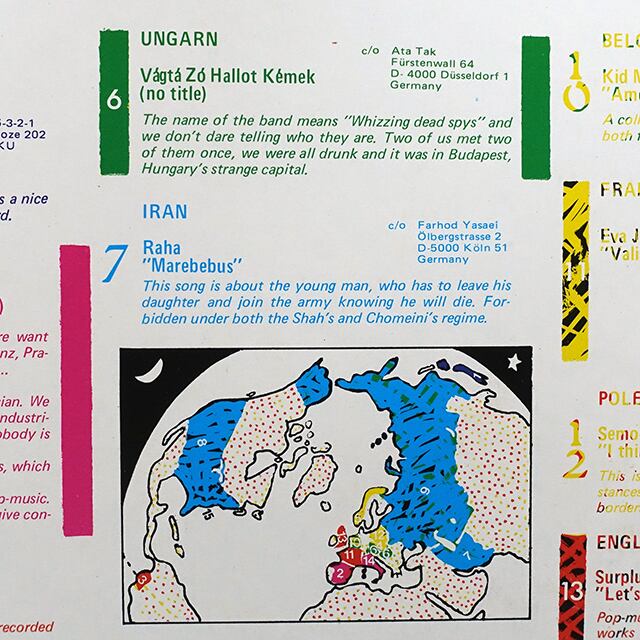 -3-2-1
oze 202
KU
s a nice
d.
)
re want
nz, Pra-
...
sian. We
industri-
obody is
s, which
p-music.
give con-
recorded
UNGARN
c/o Ata Tak
Fürstenwall 64
D- 4000 Düsseldorf 1
Germany
6
Vágtá Zó Hallot Kémek
(no title)
The name of the band means "Whizzing dead spys" and
we don't dare telling who they are. Two of us met two
of them once, we were all drunk and it was in Budapest,
Hungary's strange capital.
IRAN
c/o Farhod Yasaei
Ölbergstrasse 2
D-5000 Köln 51
Germany
7
Raha
"Marebebus"
This song is about the young man, who has to leave his
daughter and join the army knowing he will die. For-
bidden under both the Shah's and Chomeini's regime.
8
15
9
7
3
11
14
2
3
BELG
10
Kid M
"Ame
A coll
both f
FRAN
11
Eva J
"Vali
POLE
12
Semo
"I thi
This is
stances
border
ENGL
13
Surplu
"Let's
Pop-m
works